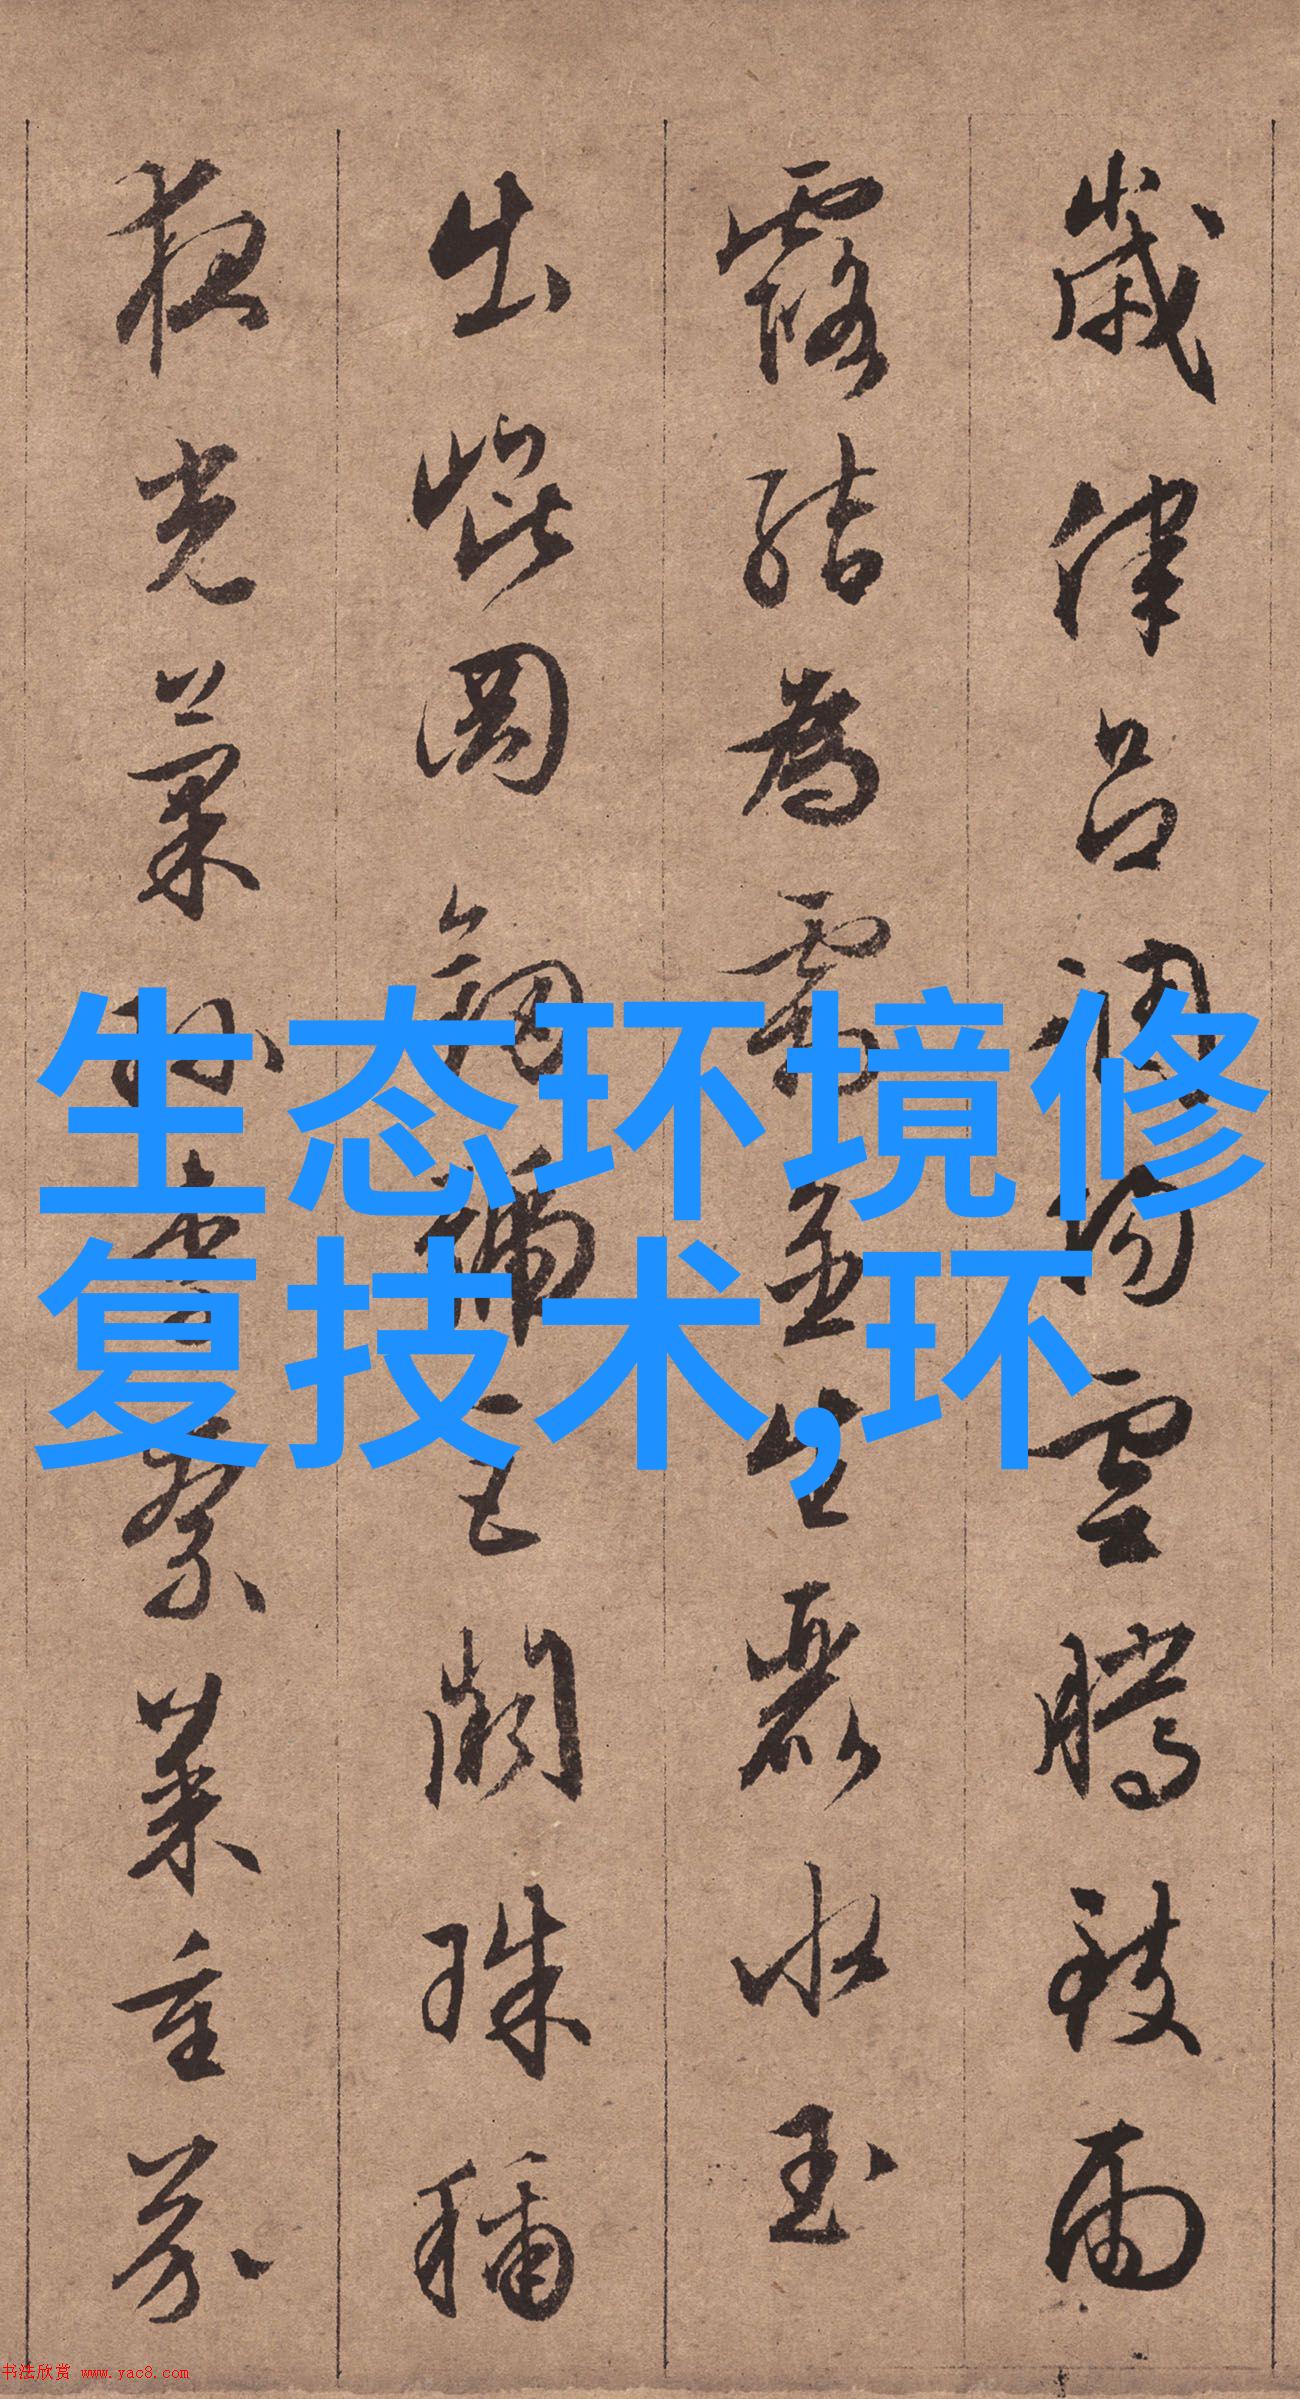 歲律呂調陽雲騰致雨
露結為霜金生麗水玉
出崐岡劍號巨闕珠稱
夜光菓珎李柰菜重芥
生态环境修
复技术,环
书法欣赏 www.yac8.com